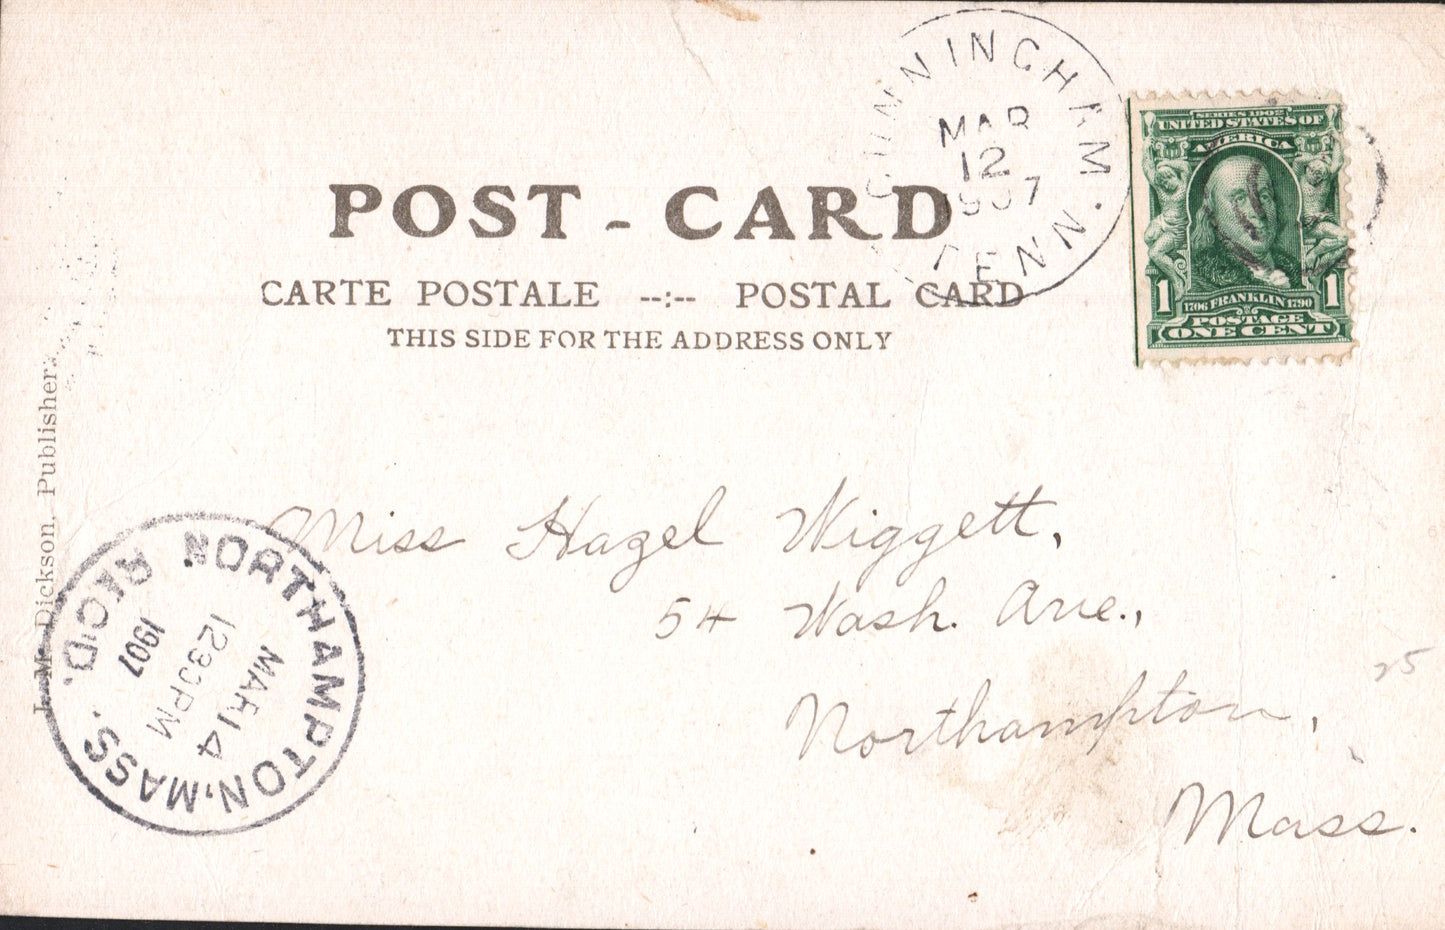 POST - CARD
CARTE POSTALE --:-- POSTAL CARD
THIS SIDE FOR THE ADDRESS ONLY
CUNNINGHAM TENN.
MAR
12
1907
SERIES 1902
UNITED STATES OF
AMERICA
1 1706 FRANKLIN 1790 1
POSTAGE
ONE CENT
Dickson, Publisher.
Miss Hazel Wiggett,
54 Wash. Ave.,
Northampton,
Mass.
25
NORTHAMPTON, MASS.
REC'D.
MAR 14
1230PM
1907